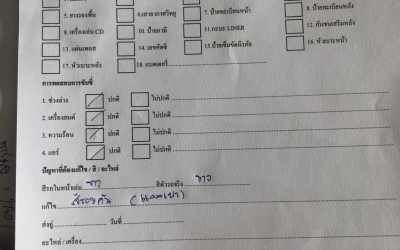 5. ยางรองพื้น 6.เสาอากาศวิทยุ 7. ป้ายทะเบียนหน้า 8. ป้ายทะเบียนหลัง
9. เครื่องเล่น CD 10. ป้ายภาษี 11.กะบะ LINER 12. กันชนเสริมหลัง
13. แผ่นเพลส 14. เลขคัสซี 15.ป้ายเข็มขัดนิรภัย 16. หัวเบาะหน้า
17. หัวเบาะหลัง 18. แบตเตอรี่
การทดสอบการขับขี่
1. ช่วงล่าง ปกติ ไม่ปกติ
2. เครื่องยนต์ ปกติ ไม่ปกติ
3. ความร้อน ปกติ ไม่ปกติ
4. แอร์ ปกติ ไม่ปกติ
ปัญหาที่ต้องแก้ไข / สี / อะไหล่
สีรถในหน้าเล่ม ขาว สีตัวรถจริง ขาว
แก้ไข สีรอบคัน
ส่งอู่ วันที่
อะไหล่ / เครื่อง